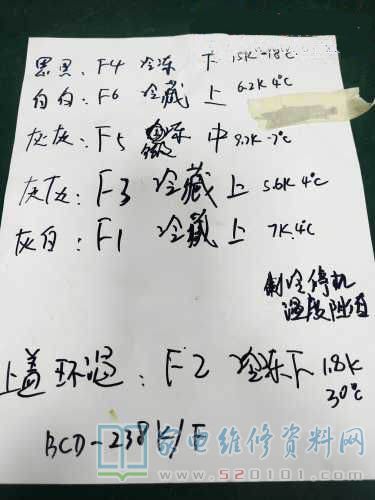 黑黑：F4 冷冻 下 15K -18℃
白白：F6 冷藏 上 6.2K 4℃
灰灰：F5 冻 中 9.2K -7℃
灰灰：F3 冷藏 上 5.6K 4℃
灰白：F1 冷藏 上 7K 4℃
制冷停机
温度阻值
上盖环温：F2 冷冻下 1.8K
30℃
BCD-238K/E
家电维修资料网
www.520101.com